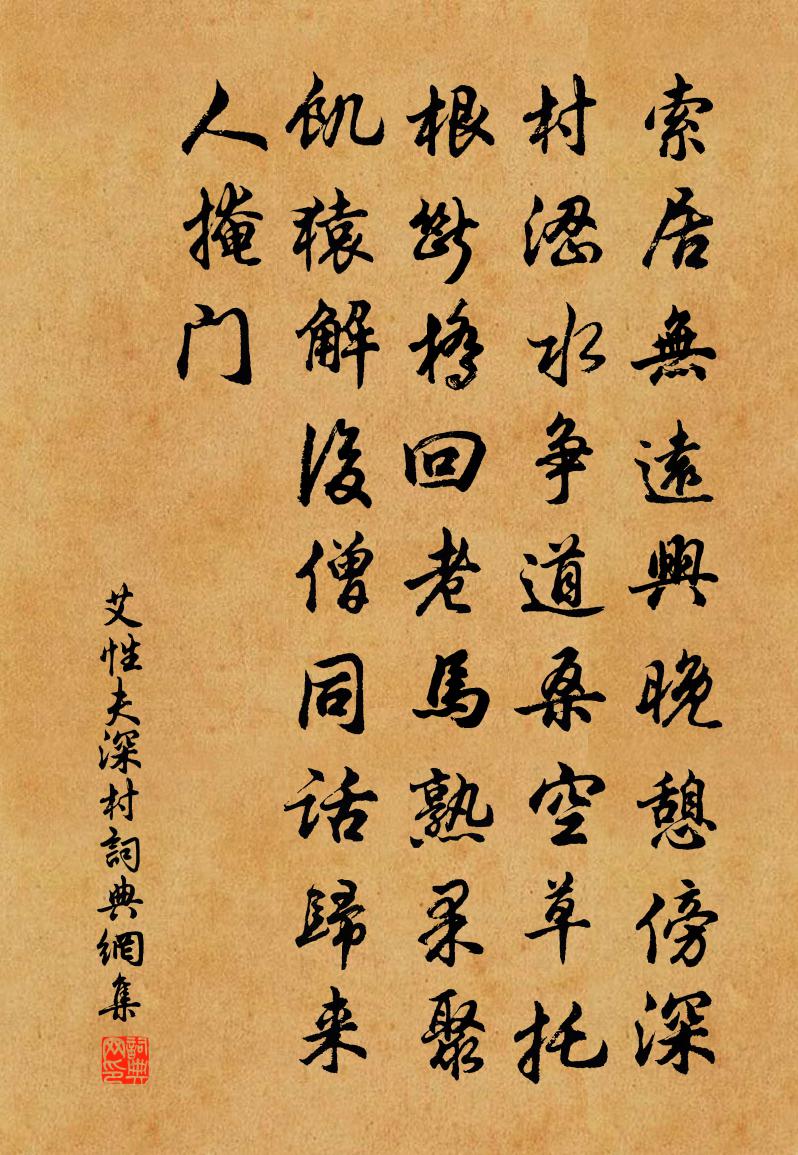 索居無遠興晚憩傍深
村水争道桑空草托
根斷橋回老馬熟果聚
飢猿解後僧同话歸来
人掩门
艾性夫深村詞典網集
詞典网印